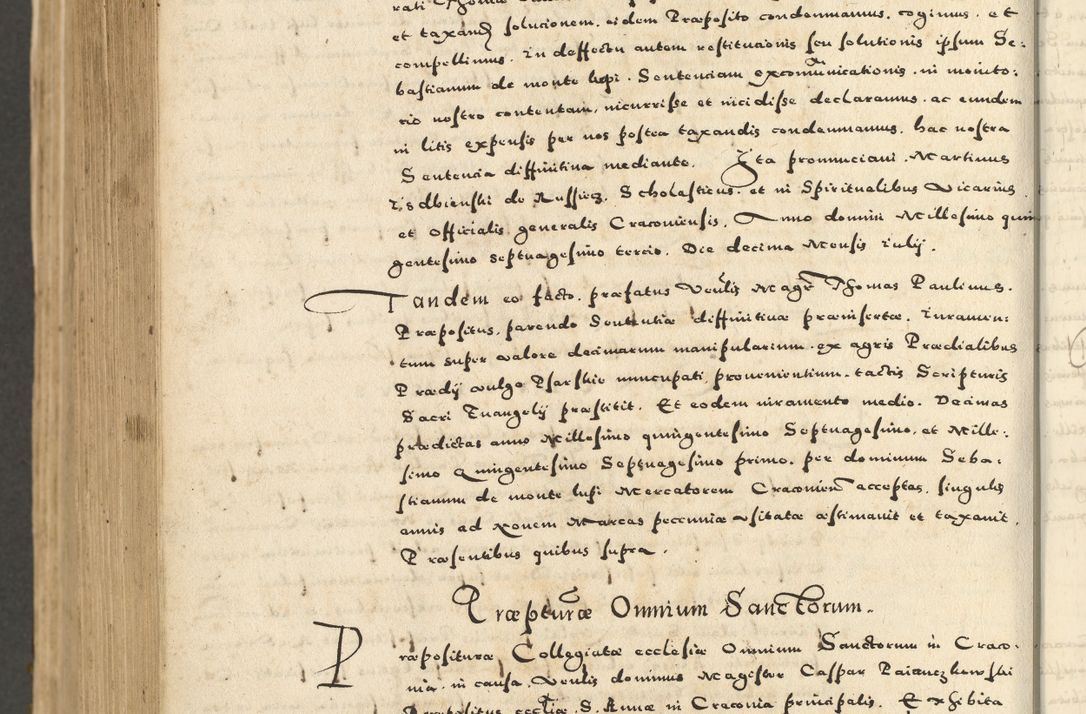 et taxand solucionem. eidem Præposito condemnamus. cogimus. et
compellimus. In deffectu autem restitucionis seu solutionis ipsum Se:
bastianum de monte lupi. Sentenciam excomunicationis. in monito:
rio nostro contentam, incurrisse et incidisse declaramus. ac eundem
in litis expensis per nos postea taxandis condemnamus. hac nostra
Sentencia diffinitiua mediante. Ita pronunciaui. Martinus
Izdbienski de Russiecz, Scholasticus. et in Spiritualibus Vicarius
et Officialis generalis Cracouiensis. Anno domini Millesimo quin
gentesimo septuagesimo tercio. Die decima Mensis Iulij.
Tandem eo facto. præfatus Venlis Magr Thomas Paulinus.
Præpositus, parendo Sententiæ diffinitiuæ præinsertæ. Iuramen:
tum super valore decimarum manipularium. ex agris Prædialibus
Prædij vulgo Psarskie nuncupati, prouenientium. tactis Scripturis
Sacri Euangelij præstitit. Et eodem iuramento medio. Decimas
prædictas anno Millesimo quingentesimo Septuagesimo, et Mille:
simo Quingentesimo Septuagesimo primo. per dominum Seba:
stianum de monte lupi Mercatorem Cracouien acceptas, singulis
annis ad Nouem Marcas pecuniæ vsitatæ æstimauit et taxauit.
Præsentibus quibus supra.
Præpturæ Omnium Sanctorum.
Præposituræ Collegiatæ ecclesiæ Omnium Sanctorum in Craco:
uia. in causa. Venlis dominus Magister Caspar
Præpositus eccliæ. S. Annæ in Cracouia principalis. Exhibita